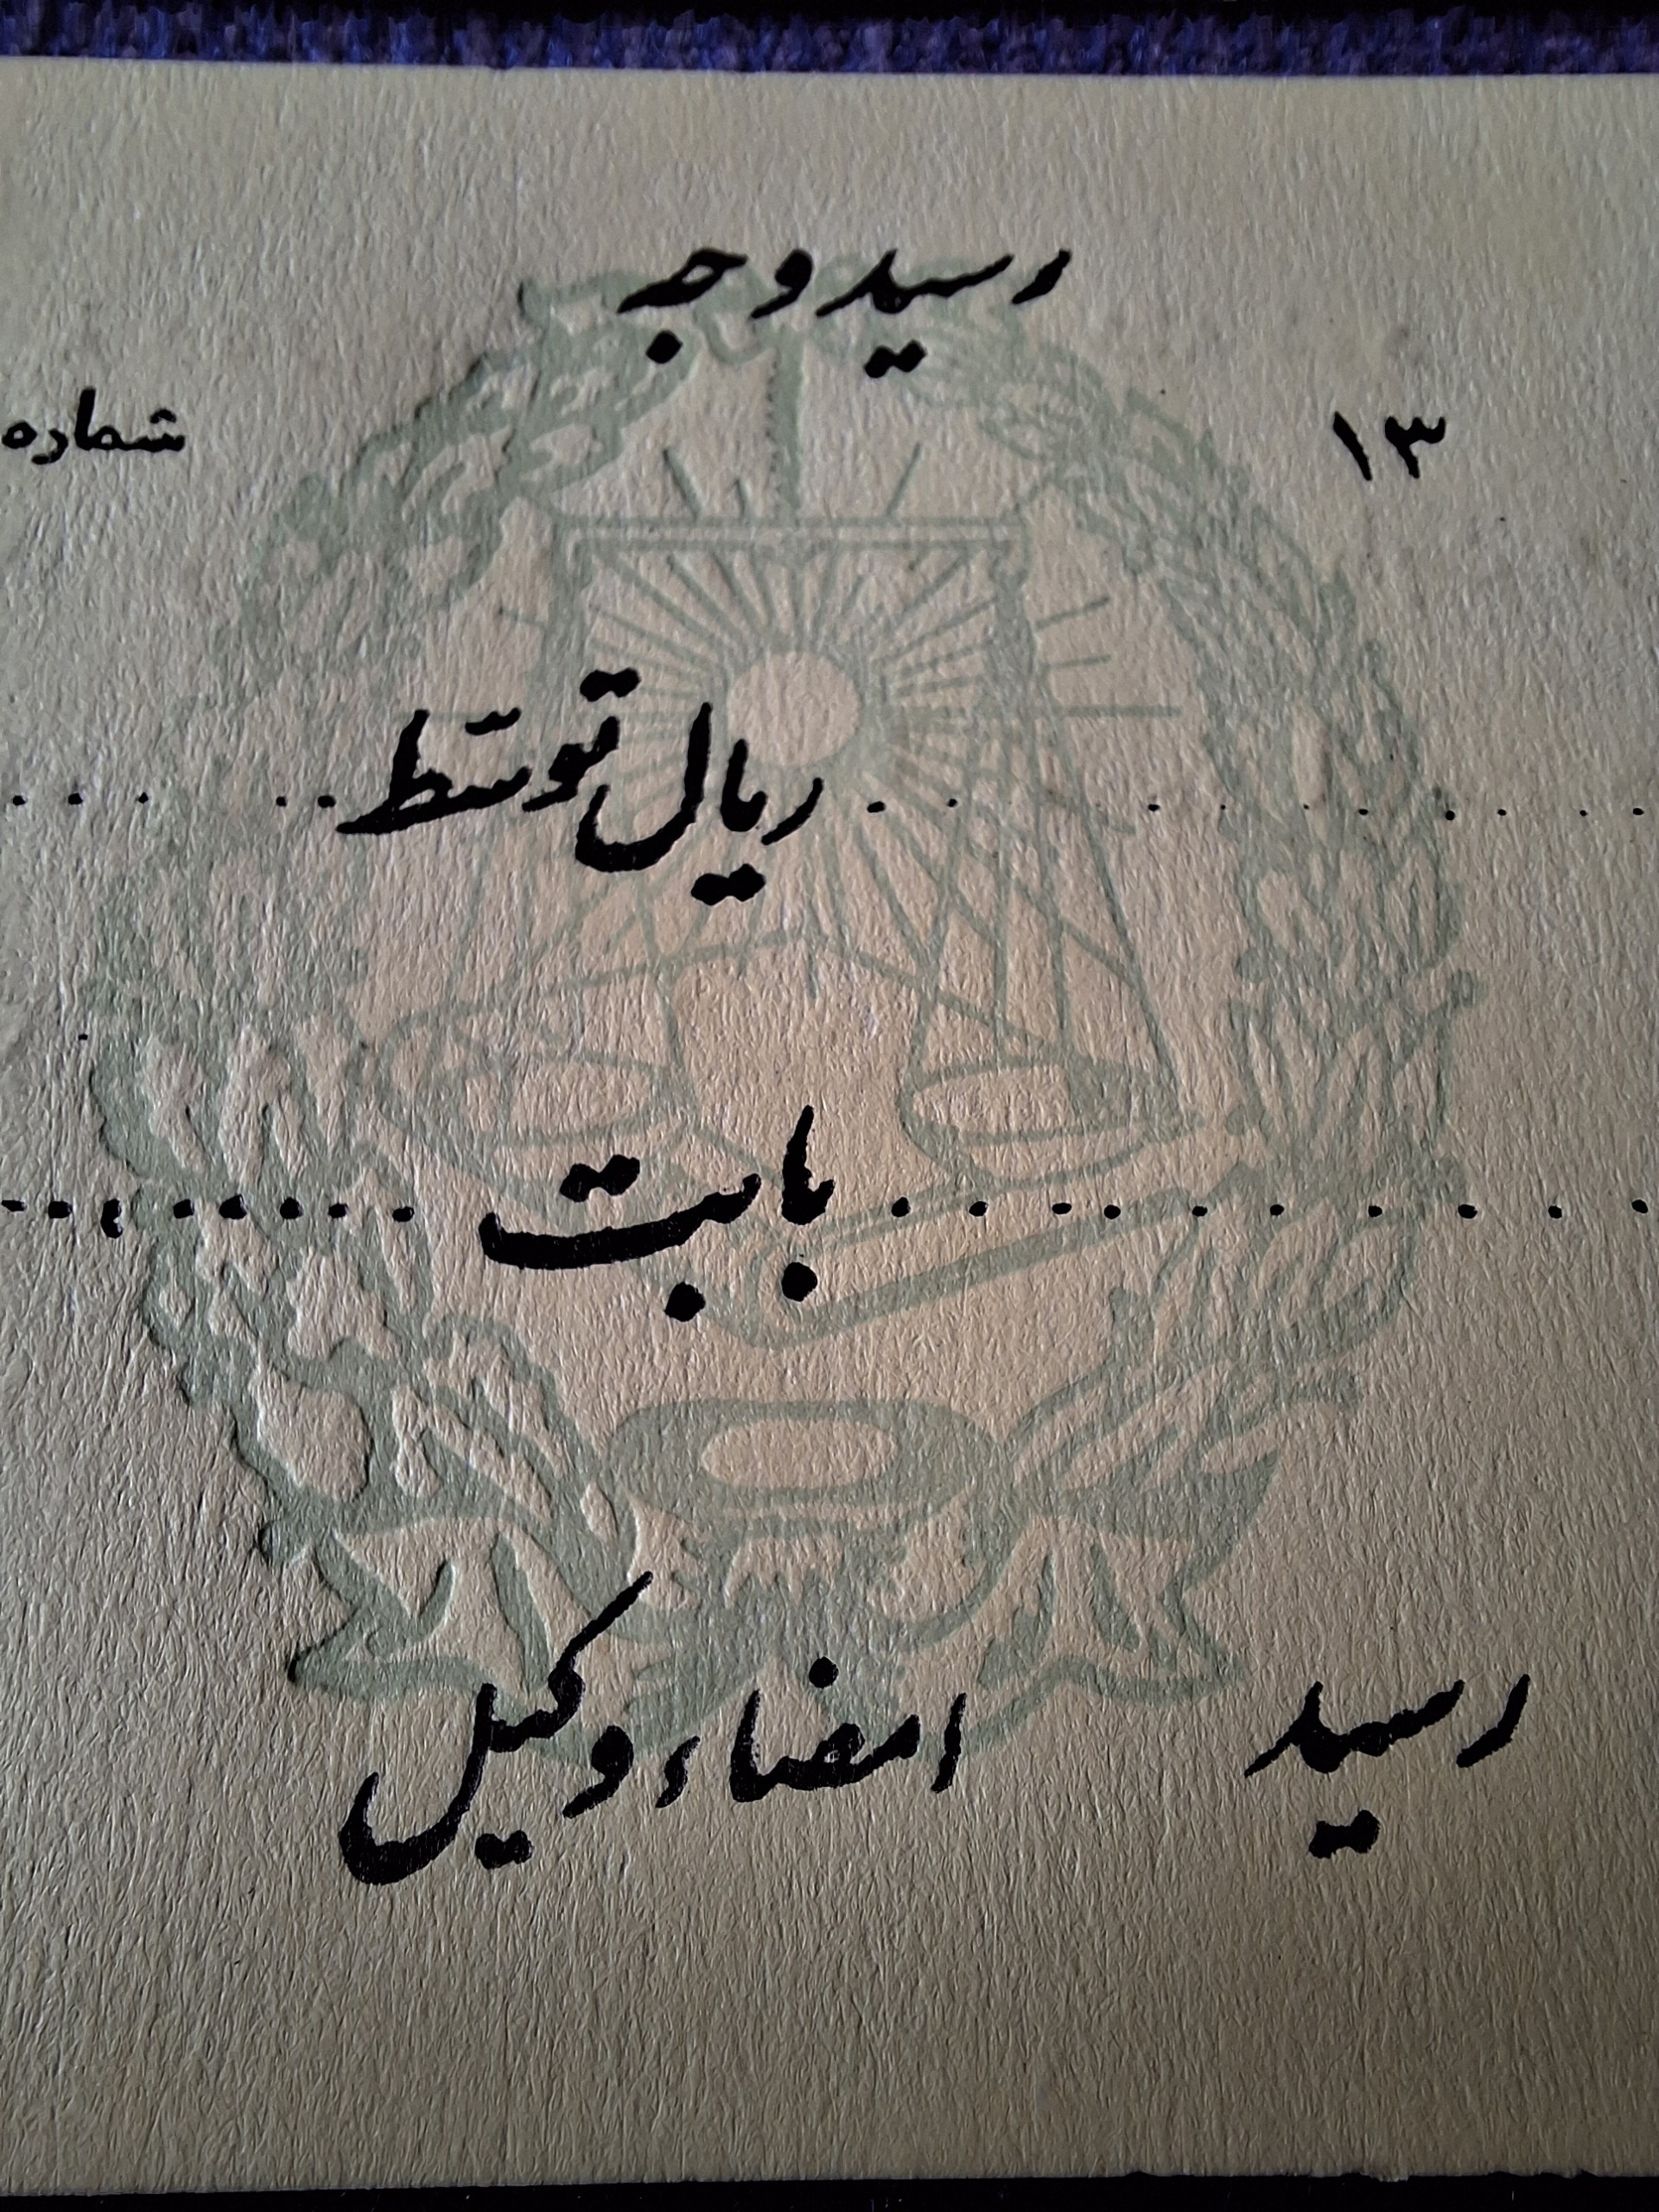 رسید وجه
۱۳ شماره
.......... ریال توسط ..........
.......... بابت ..........
رسید امضاء وکیل